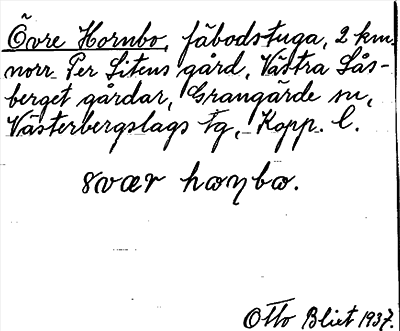 Övre Hornbo, fäbodstuga, 2 km.
norr Per Litens gård, Västra Lås-
berget gårdar, Grangärde sn,
Västerbergslags tg, Kopp. l.
8vær hoηbo.
Otto Blixt 1937.